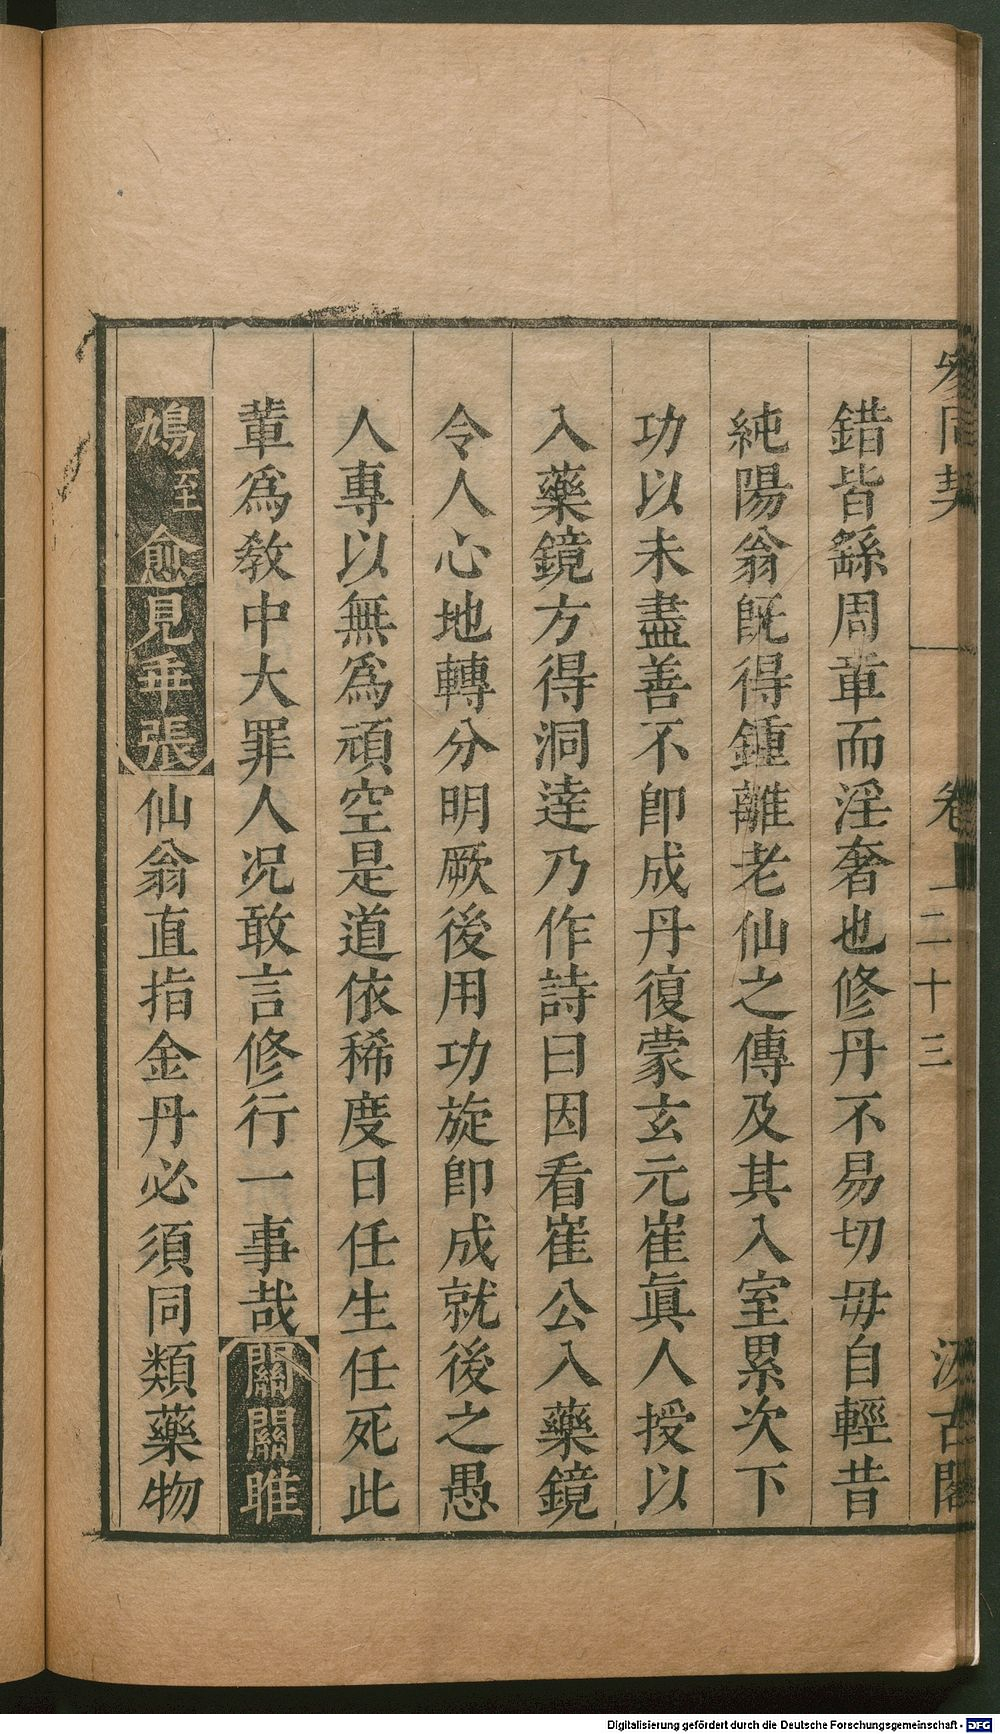 參同契 卷一 二十三 汲古閣
錯皆繇周章而淫奢也修丹不易切毋自輕昔
純陽翁旣得鍾離老仙之傳及其入室累次下
功以未盡善不卽成丹復蒙玄元崔眞人授以
入藥鏡方得洞達乃作詩曰因看崔公入藥鏡
令人心地轉分明厥後用功旋卽成就後之愚
人專以無爲頑空是道依稀度日任生任死此
輩爲敎中大罪人况敢言修行一事哉關關雎
鳩至愈見乖張仙翁直指金丹必須同類藥物
Digitalisierung gefördert durch die Deutsche Forschungsgemeinschaft - DFG